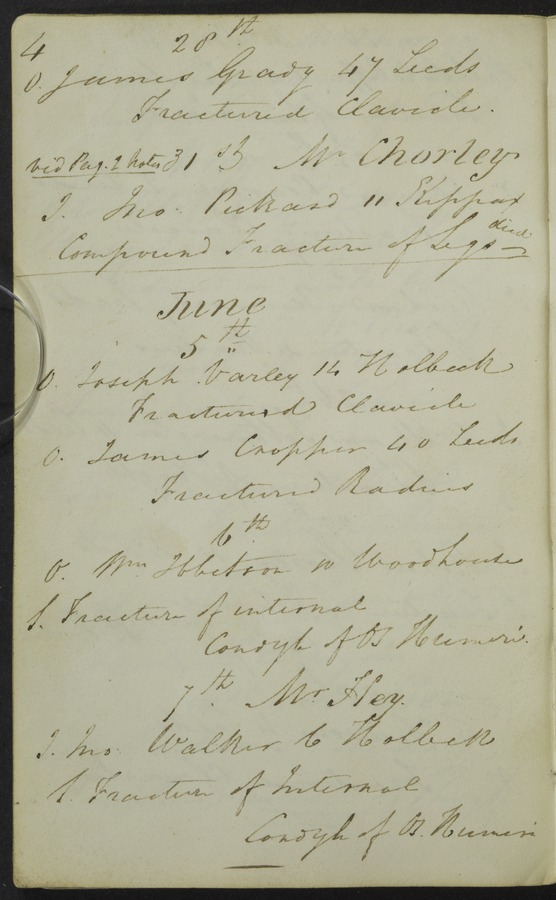 4 28th
O. James Grady 47 Leeds
Fractured Clavicle.
vid Pag. 2 Notes 31st Mr Chorley
I. Jno. Pickard 11 Kippax
Compound Fracture of Legs died
June
5th
O. Joseph Varley 14 Holbeck
Fractured Clavicle
O. James Cropper 40 Leeds
Fractured Radius
6th
O. Wm Ibbetson 10 Woodhouse
1. Fracture of internal
Condyle of Os Humeri.
7th. Mr Hey.
I. Jno. Walker 6 Holbeck
1. Fracture of Internal
Condyle of Os. Humeri